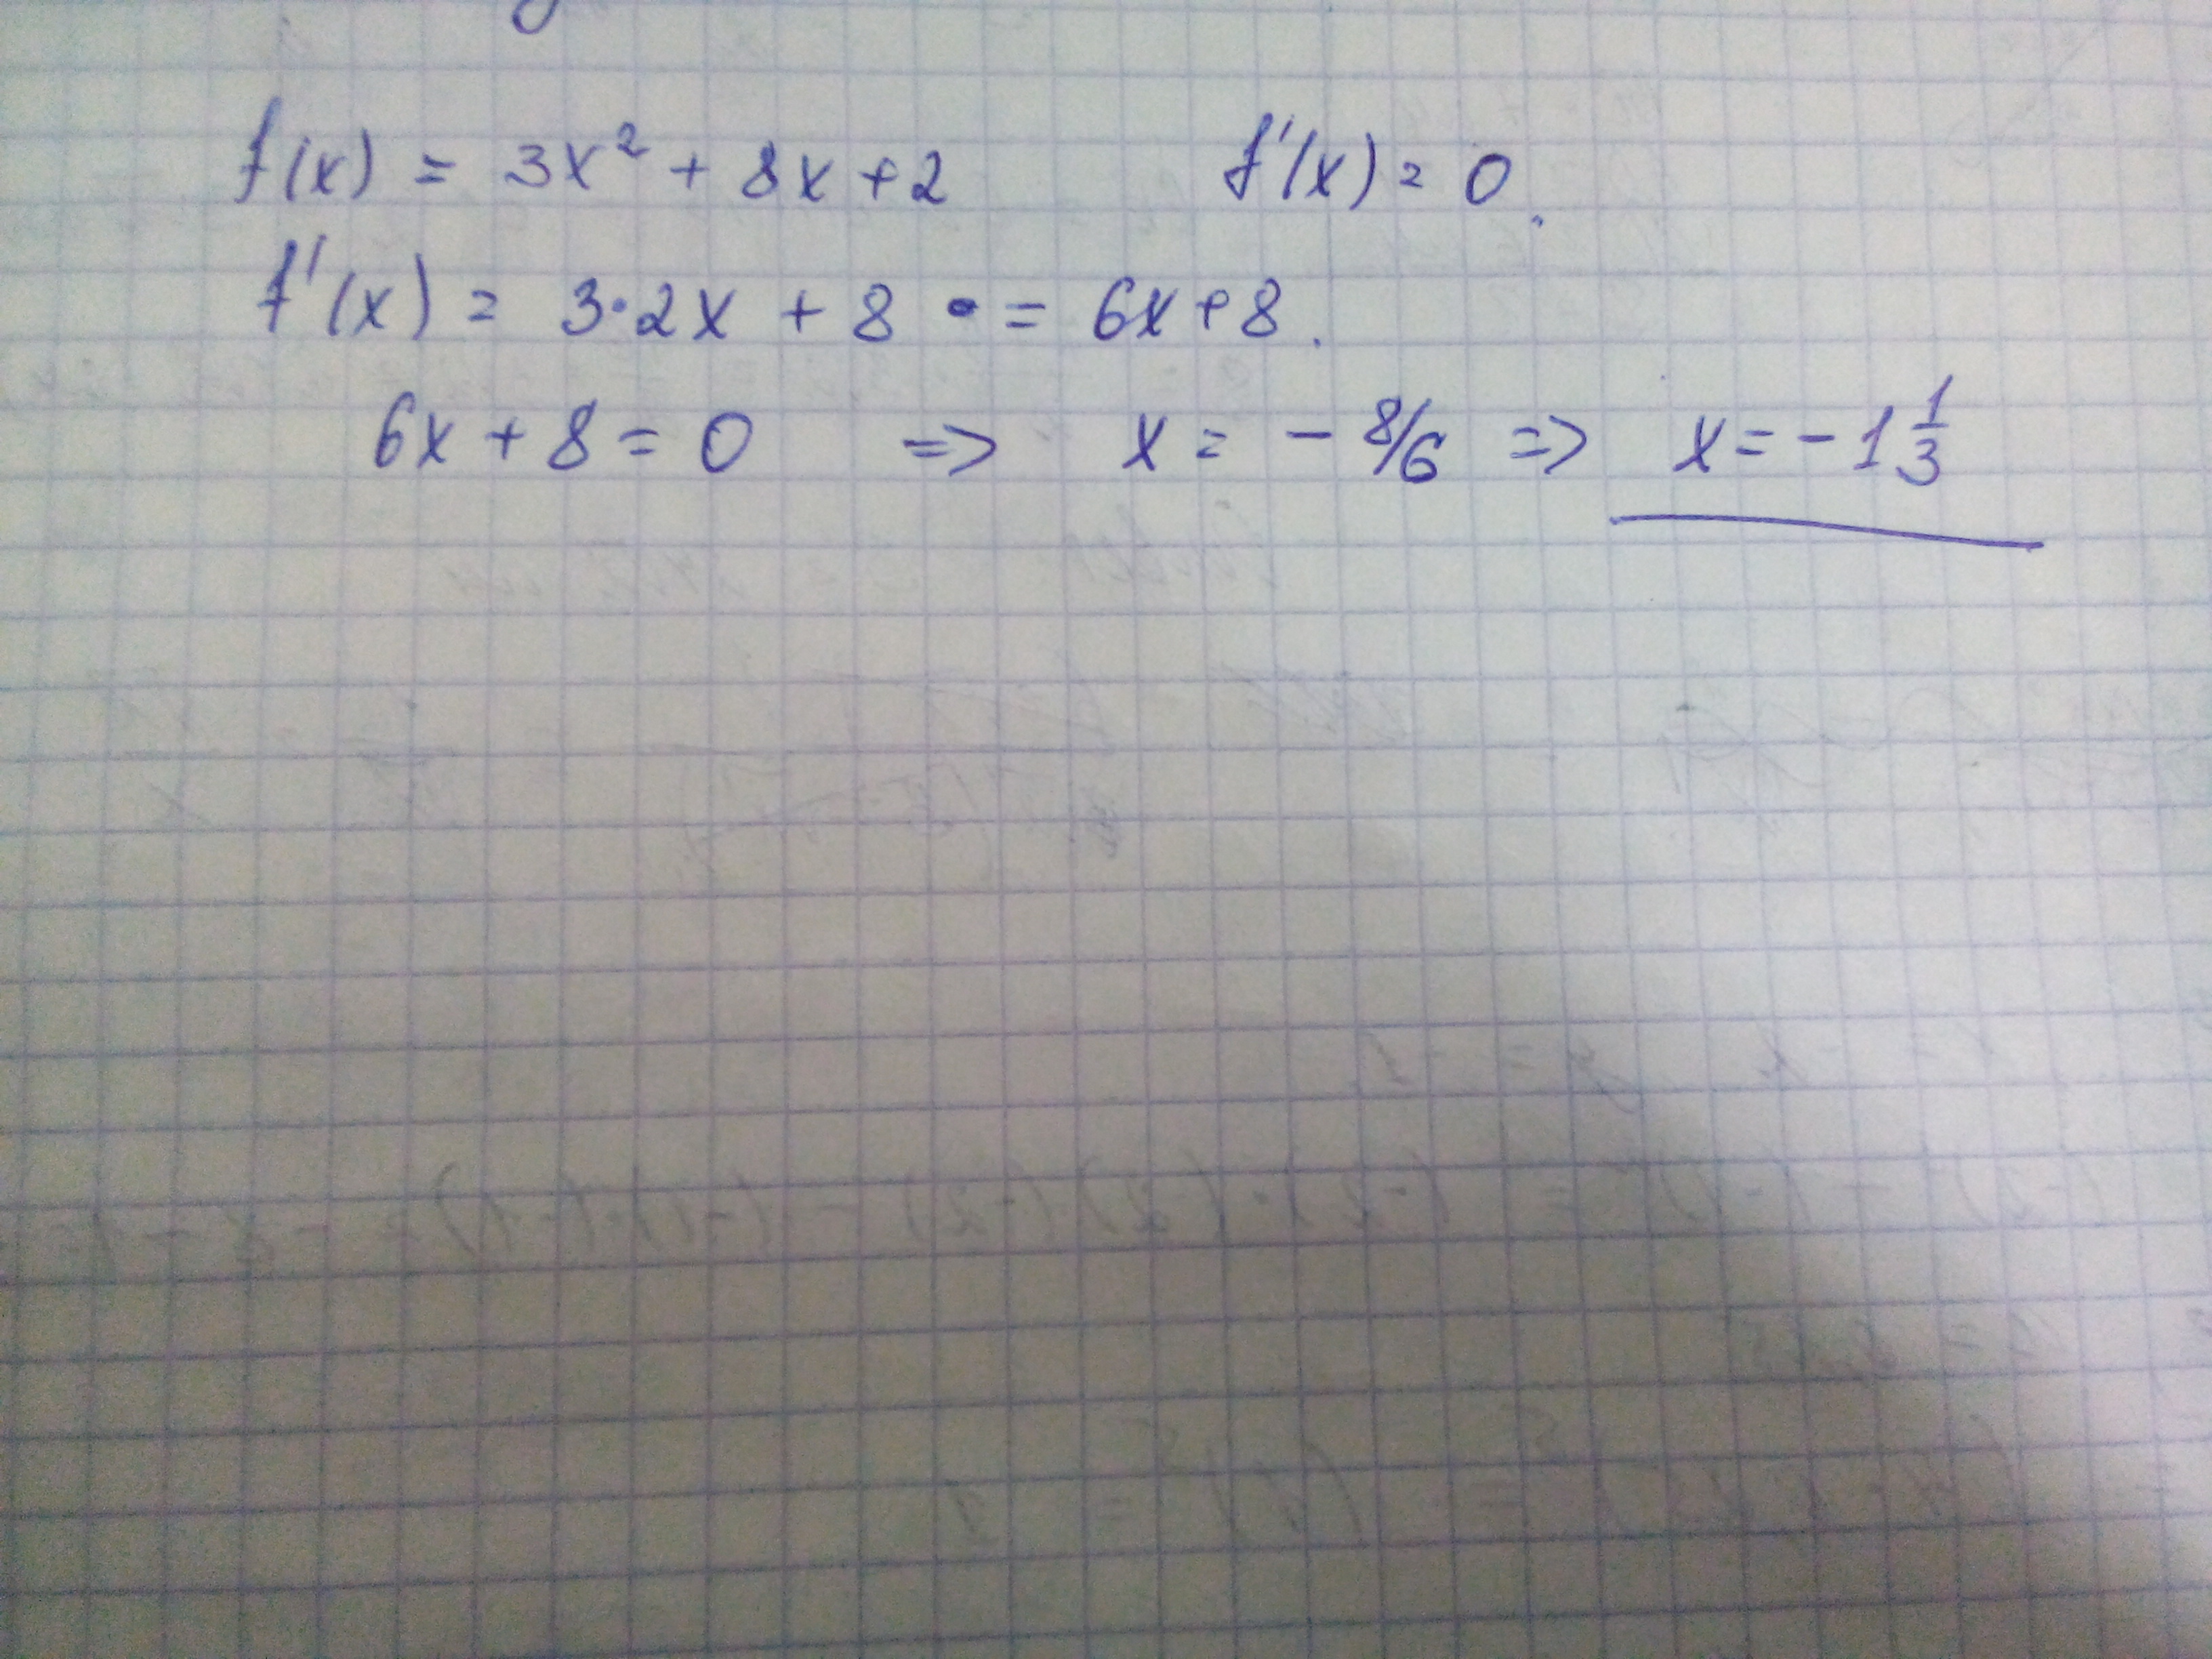 f(x) = 3x² + 8x + 2 f'(x) = 0.
f'(x) = 3·2x + 8 · = 6x + 8.
6x + 8 = 0 => x = - 8/6 => x = - 1 1/3